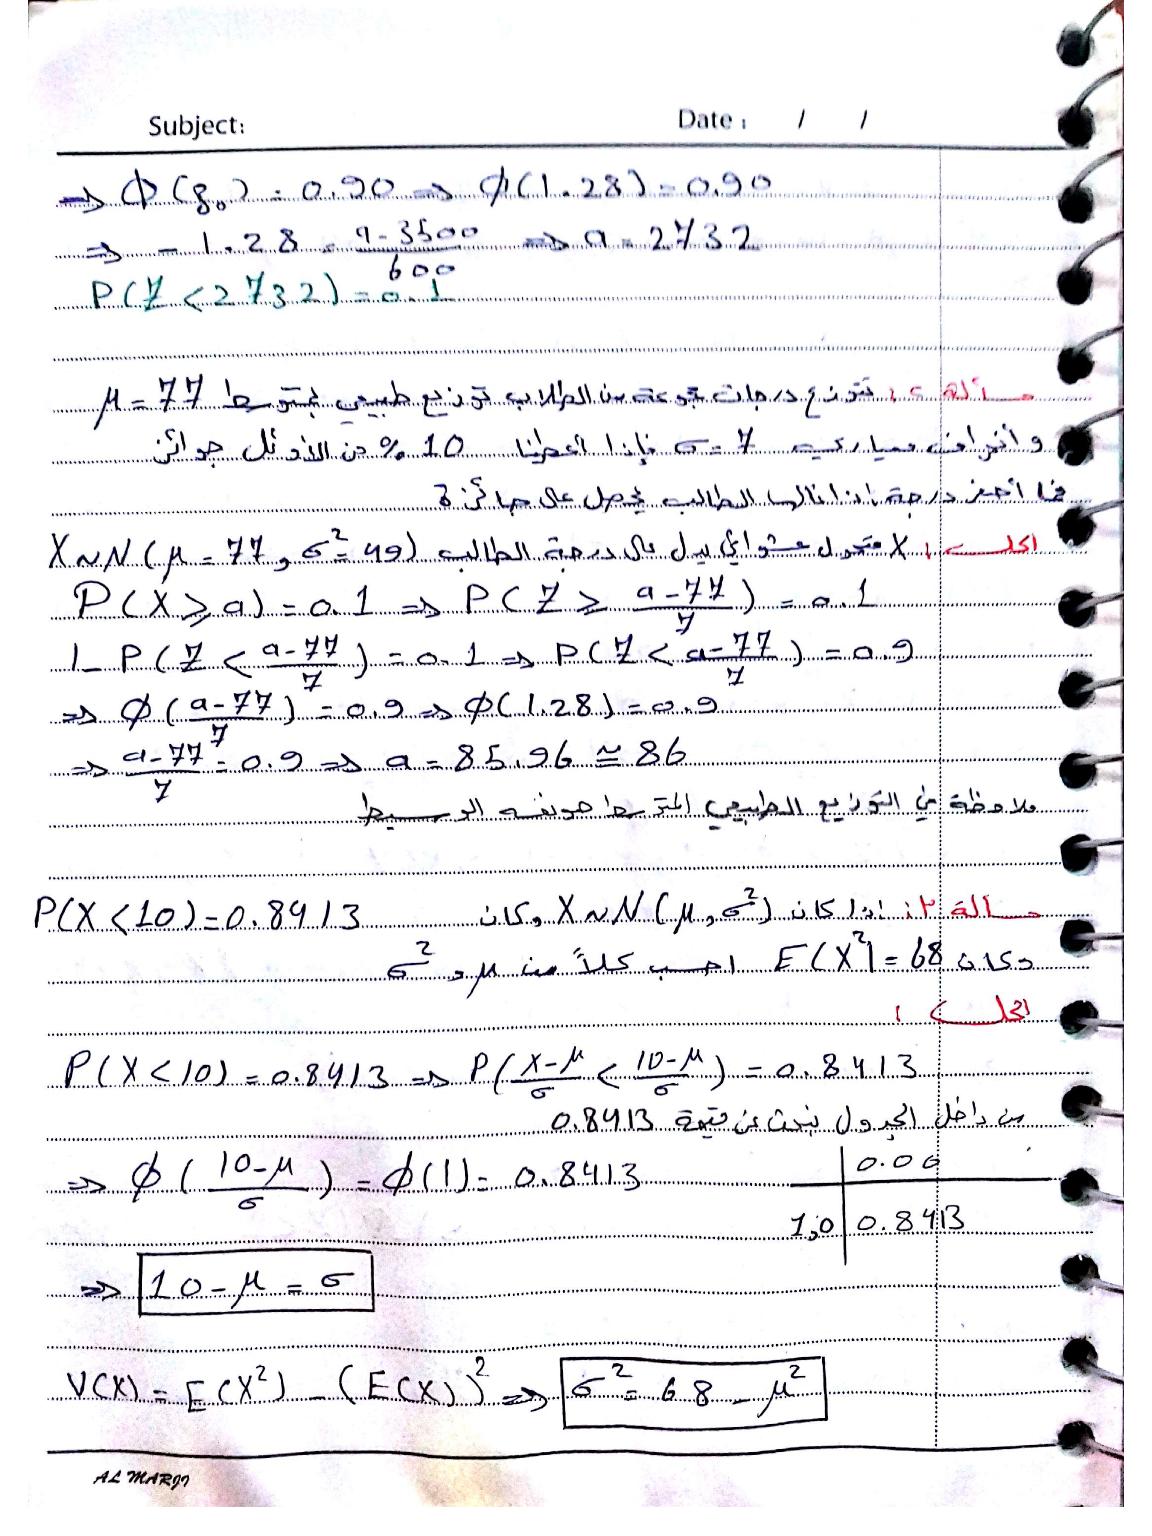 Subject: Date: / /
⇒ φ(z₀) = 0.90 ⇒ φ(1.28) = 0.90
⇒ -1.28 = (a-3500)/600 ⇒ a = 2732
P(Z < 2732) = 0.1
مسألة 2: تتوزع درجات مجموعة من الطلاب توزيع طبيعي بمتوسط μ = 77
وانحراف معياري σ = 7 فإذا أعطينا 10 % من الأوائل جوائز
فما أصغر درجة إذا نالها الطالب يحصل على جائزة
الحل: X متحول عشوائي يدل على درجة الطالب X ~ N(μ = 77, σ² = 49)
P(X ≥ a) = 0.1 ⇒ P(Z ≥ (a-77)/7) = 0.1
1 - P(Z < (a-77)/7) = 0.1 ⇒ P(Z < (a-77)/7) = 0.9
⇒ φ((a-77)/7) = 0.9 ⇒ φ(1.28) = 0.9
⇒ (a-77)/7 = 0.9 ⇒ a = 85.96 ≅ 86
ملاحظة في التوزيع الطبيعي المتوسط هو نفسه الوسيط
مسألة 3: إذا كان X ~ N(μ, σ²) وكان P(X < 10) = 0.8413
وكان E(X²) = 68 احسب كلاً من μ و σ²
الحل:
P(X < 10) = 0.8413 ⇒ P((X-μ)/σ < (10-μ)/σ) = 0.8413
من داخل الجدول نبحث عن قيمة 0.8413
0.00
⇒ φ((10-μ)/σ) = φ(1) = 0.8413
1,0 0.8413
⇒ 10 - μ = σ
V(X) = E(X²) - (E(X))² ⇒ σ² = 68 - μ²
AL MARJI